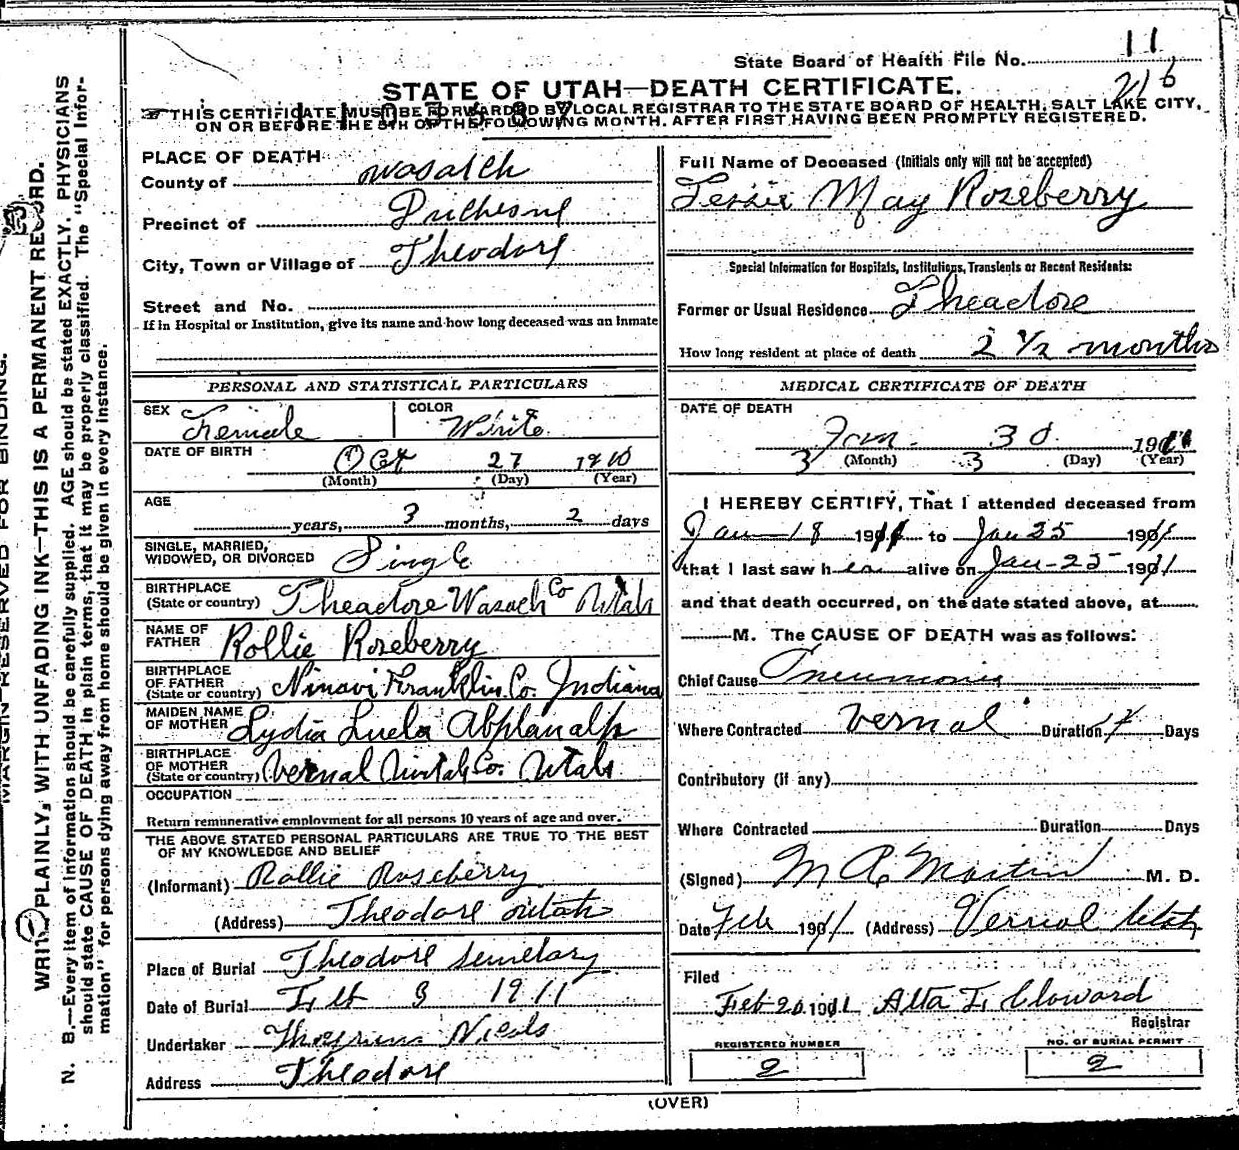 11
State Board of Health File No.
216
STATE OF UTAH—DEATH CERTIFICATE.
THIS CERTIFICATE MUST BE FORWARDED BY LOCAL REGISTRAR TO THE STATE BOARD OF HEALTH, SALT LAKE CITY,
ON OR BEFORE THE 5TH OF THE FOLLOWING MONTH. AFTER FIRST HAVING BEEN PROMPTLY REGISTERED.
PLACE OF DEATH
County of Wasatch
Precinct of Duchesne
City, Town or Village of Theodore
Street and No.
If in Hospital or Institution, give its name and how long deceased was an inmate
Full Name of Deceased (Initials only will not be accepted)
May Roseberry
Special Information for Hospitals, Institutions, Transients or Recent Residents:
Former or Usual Residence Theadore
How long resident at place of death 2 1/2 months
PERSONAL AND STATISTICAL PARTICULARS
SEX Female
COLOR White
DATE OF BIRTH Oct 27 1910
(Month) (Day) (Year)
AGE
years, 3 months, 2 days
SINGLE, MARRIED,
WIDOWED, OR DIVORCED Single
BIRTHPLACE
(State or country) Theadore Wasach Co Utah
NAME OF
FATHER Rollie Roseberry
BIRTHPLACE
OF FATHER
(State or country) Ninavi Franklin Co. Indiana
MAIDEN NAME
OF MOTHER Lydia Luela Abplanalp
BIRTHPLACE
OF MOTHER
(State or country) Vernal Uintah Co. Utah
OCCUPATION
Return remunerative employment for all persons 10 years of age and over.
THE ABOVE STATED PERSONAL PARTICULARS ARE TRUE TO THE BEST
OF MY KNOWLEDGE AND BELIEF
(Informant) Rollie Roseberry
(Address) Theodore Utah
Place of Burial Theodore Semetary
Date of Burial Feb 3 1911
Undertaker Nicols
Address Theodore
MEDICAL CERTIFICATE OF DEATH
DATE OF DEATH
Jan. 30 1911
3 (Month) 3 (Day) (Year)
I HEREBY CERTIFY, That I attended deceased from
Jan 18 1911 to Jan 25 1911
that I last saw her alive on Jan-25 1911
and that death occurred, on the date stated above, at
M. The CAUSE OF DEATH was as follows:
Chief Cause Pneumonia
Where Contracted Vernal Duration 7 Days
Contributory (if any)
Where Contracted Duration Days
(Signed) M. D.
Date Feb 1911 (Address) Vernal Utah
Filed
Feb 20 1911 Alta Cloward
Registrar
REGISTERED NUMBER
2
NO. OF BURIAL PERMIT
2
(OVER)
MARGIN RESERVED FOR BINDING.
WRITE PLAINLY, WITH UNFADING INK—THIS IS A PERMANENT RECORD.
N. B.—Every item of information should be carefully supplied. AGE should be stated EXACTLY. PHYSICIANS
should state CAUSE OF DEATH in plain terms, that it may be properly classified. The "Special Infor-
mation" for persons dying away from home should be given in every instance.